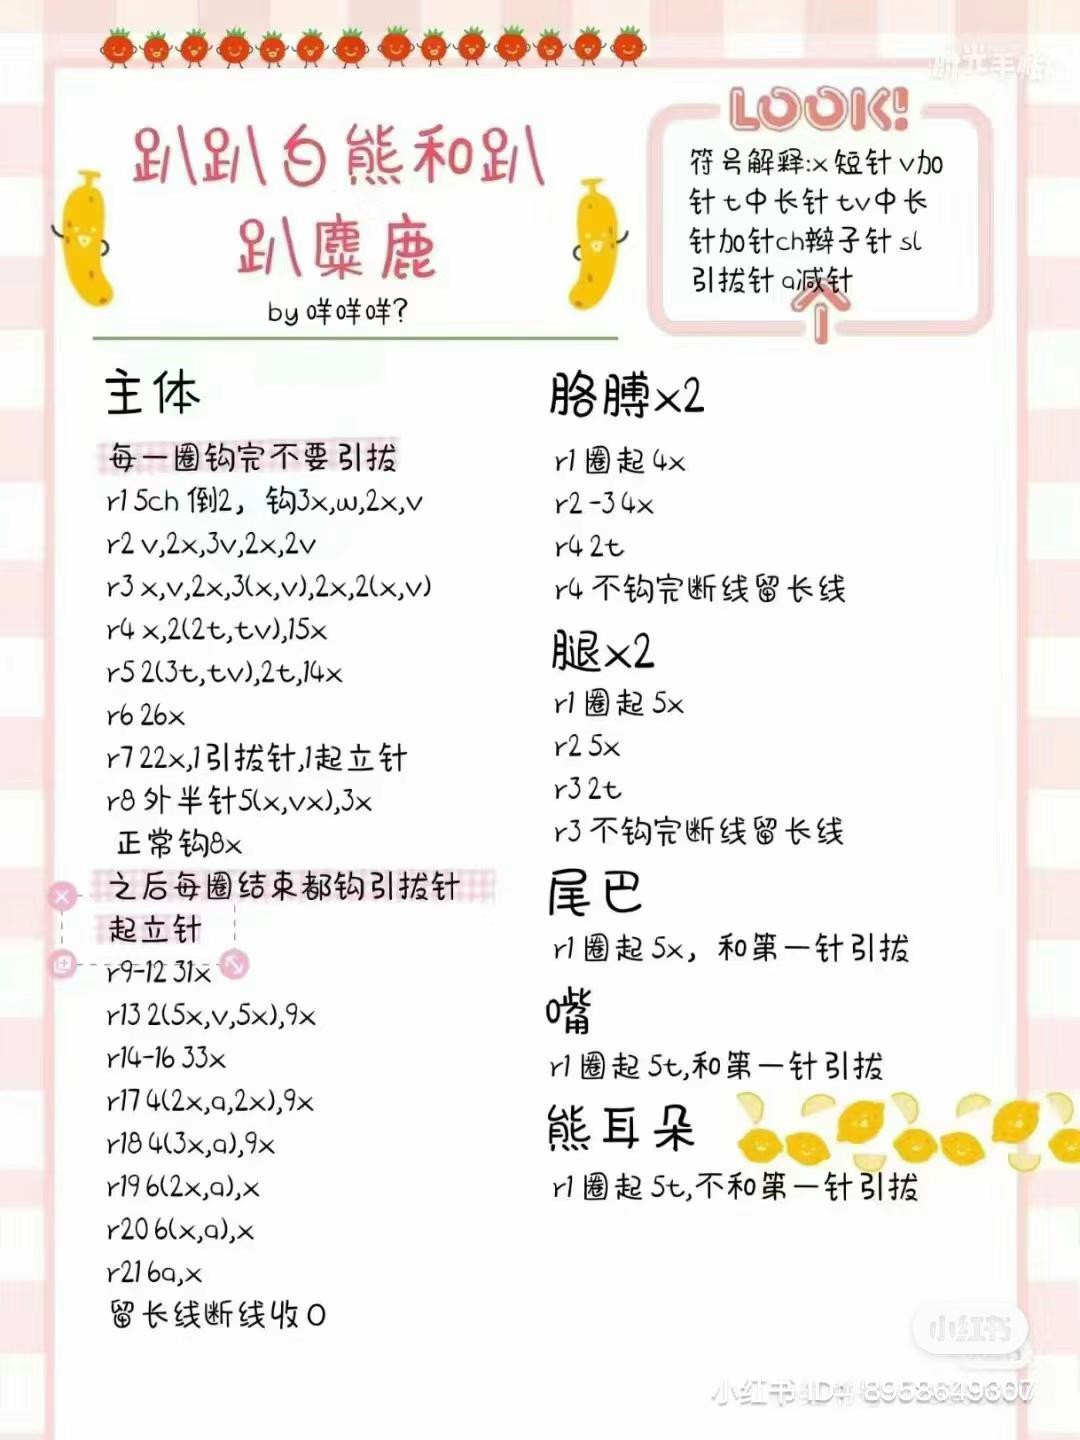 趴趴白熊和趴
趴麋鹿
by 咩咩咩?
LOOK!
符号解释:x 短针 v加
针 t中长针 tv中长
针加针ch辫子针 sl
引拔针 a减针
主体
每一圈钩完不要引拔
r1 5ch 倒2，钩3x,w,2x,v
r2 v,2x,3v,2x,2v
r3 x,v,2x,3(x,v),2x,2(x,v)
r4 x,2(2t,tv),15x
r5 2(3t,tv),2t,14x
r6 26x
r7 22x,1引拔针,1起立针
r8 外半针5(x,vx),3x
正常钩8x
之后每圈结束都钩引拔针
起立针
r9-12 31x
r13 2(5x,v,5x),9x
r14-16 33x
r17 4(2x,a,2x),9x
r18 4(3x,a),9x
r19 6(2x,a),x
r20 6(x,a),x
r21 6a,x
留长线断线收O
胳膊x2
r1 圈起 4x
r2-3 4x
r4 2t
r4 不钩完断线留长线
腿x2
r1 圈起 5x
r2 5x
r3 2t
r3 不钩完断线留长线
尾巴
r1 圈起 5x，和第一针引拔
嘴
r1 圈起 5t,和第一针引拔
熊耳朵
r1 圈起 5t,不和第一针引拔
小红书